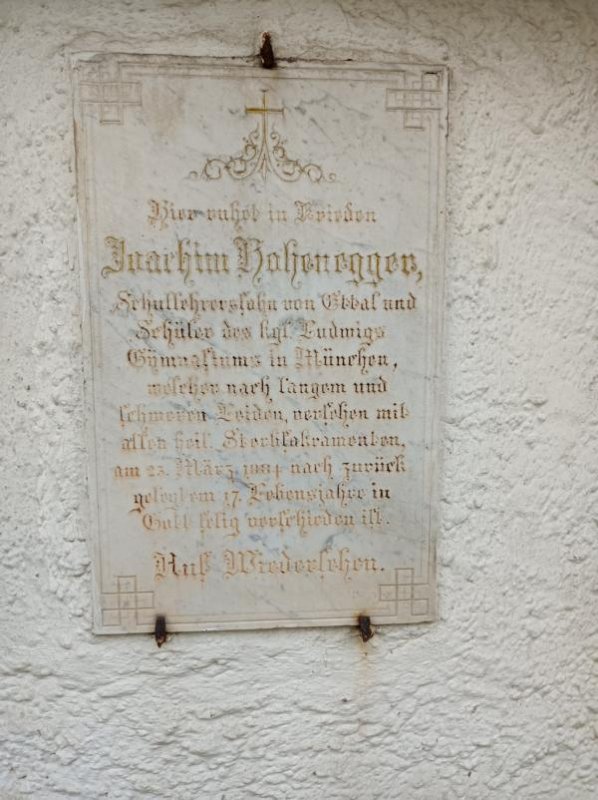 Hier ruhet in Frieden
Joachim Hohenegger,
Schullehrerssohn von Ebbs und
Schüler des kgl. Ludwigs
Gymnasiums in München,
welcher nach langem und
schweren Leiden, versehen mit
allen heil. Sterbsakramenten,
am 23. März 1884 nach zurück
gelegtem 17. Lebensjahre in
Gott selig verschieden ist.
Auf Wiedersehen.